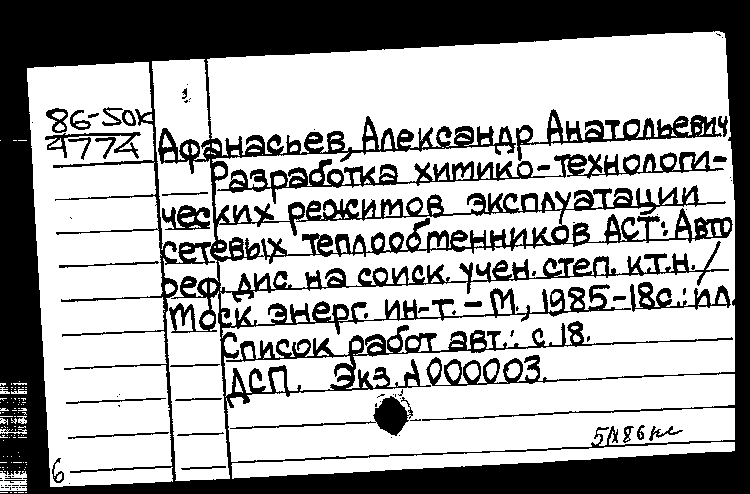 86-50к
4774
Афанасьев, Александр Анатольевич
Разработка химико-технологи-
ческих режимов эксплуатации
сетевых теплообменников АСТ: Авто
реф. дис. на соиск. учен. степ. к.т.н. /
Моск. энерг. ин-т. – М., 1985.-18с.: ил.
Список работ авт.: с. 18.
ДСП. Экз. N 000003.
6